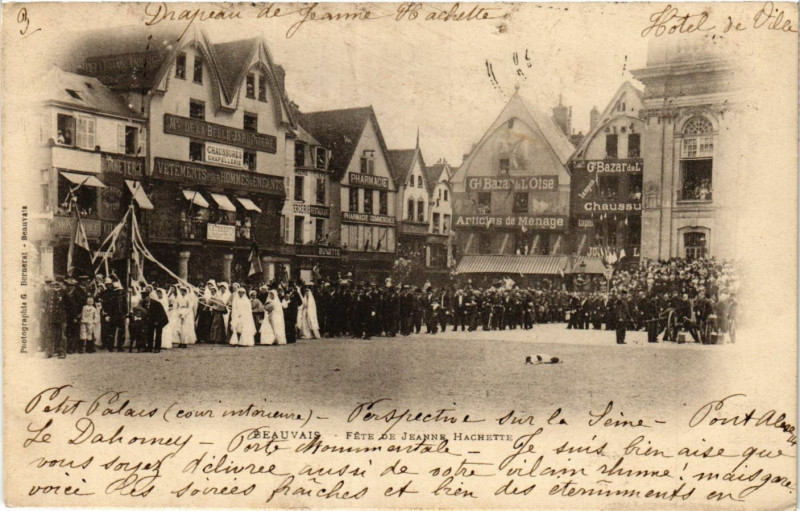 3) Drapeau de Jeanne Hachette
Hotel de Ville
Mon DE LA BELLE JARDINIÈRE
CHAUSSURES
CHAPELLERIE
VÊTEMENTS POUR HOMMES & ENFANTS
PHARMACIE
PHARMACIE
BUVETTE
Gd BAZAR DE L'OISE
Articles de Ménage
Gd BAZAR DE L
Chaussu
Photographie G. Beauvais
Petit Palais (cour intérieure) - Perspective sur la Seine - Pont Alex
BEAUVAIS - FÊTE DE JEANNE HACHETTE
Le Dahomey - Porte Monumentale - Je suis bien aise que
vous soyez délivrée aussi de votre vilain rhume! mais gare.
voici les soirées fraîches et bien des éternuments en